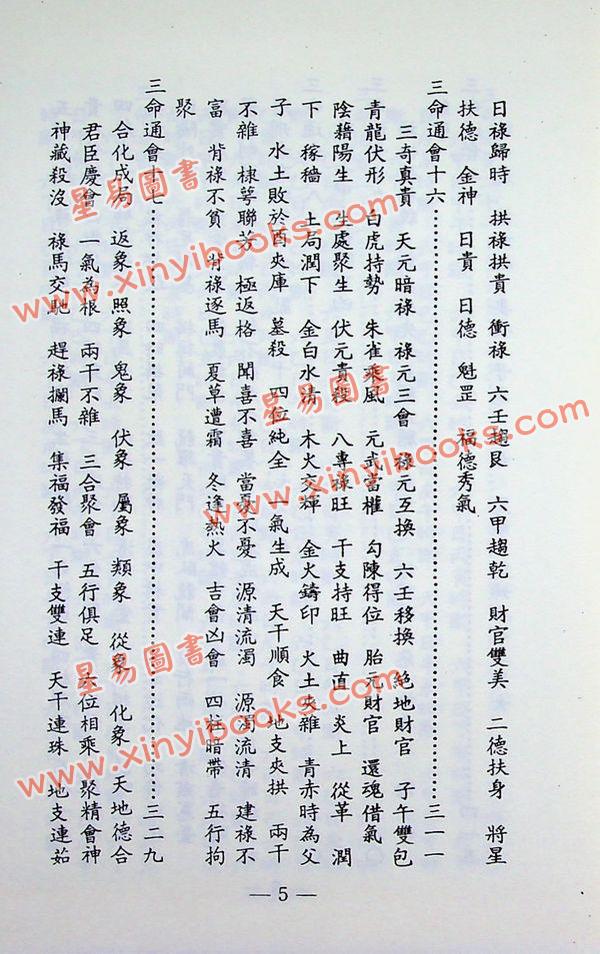 日祿歸時　拱祿拱貴　衝祿　六壬趨艮　六甲趨乾　財官雙美　二德扶身　將星
扶德　金神　日貴　日德　魁罡　福德秀氣
三命通會十六……………………三一一
三奇真貴　天元暗祿　祿元三會　祿元互換　六壬移換　絕地財官　子午雙包
青龍伏形　白虎持勢　朱雀乘風　元武當權　勾陳得位　胎元財官　還魂借氣
陰藉陽生　生處聚生　伏元貴殺　八專祿旺　干支持旺　曲直　炎上　從革　潤
下　稼穡　土局潤下　金白水清　木火交輝　金火鑄印　火土夾雜　青赤時為父
子　水土敗於酉夾庫　墓殺　四位純全　一氣生成　天干順食　地支夾拱　兩干
不雜　棣萼聯芳　極返格　聞喜不喜　當憂不憂　源清流濁　源濁流清　建祿不
富　背祿不貧　背祿逐馬　夏草遭霜　冬逢熱火　吉會凶會　四柱暗帶　五行拘
聚
三命通會十七……………………三二九
合化成局　返象　照象　鬼象　伏象　屬象　類象　從象　化象　天地德合
君臣慶會　一氣為根　兩干不雜　三合聚會　五行俱足　六位相乘　聚精會神
神藏殺沒　祿馬交馳　趕祿攔馬　集福發福　干支雙連　天干連珠　地支連茹
— 5 —
星易圖書
www.xinyibooks.com
星易圖書
www.xinyibooks.com
星易圖書
www.xinyibooks.com
星易圖書
www.xinyibooks.com